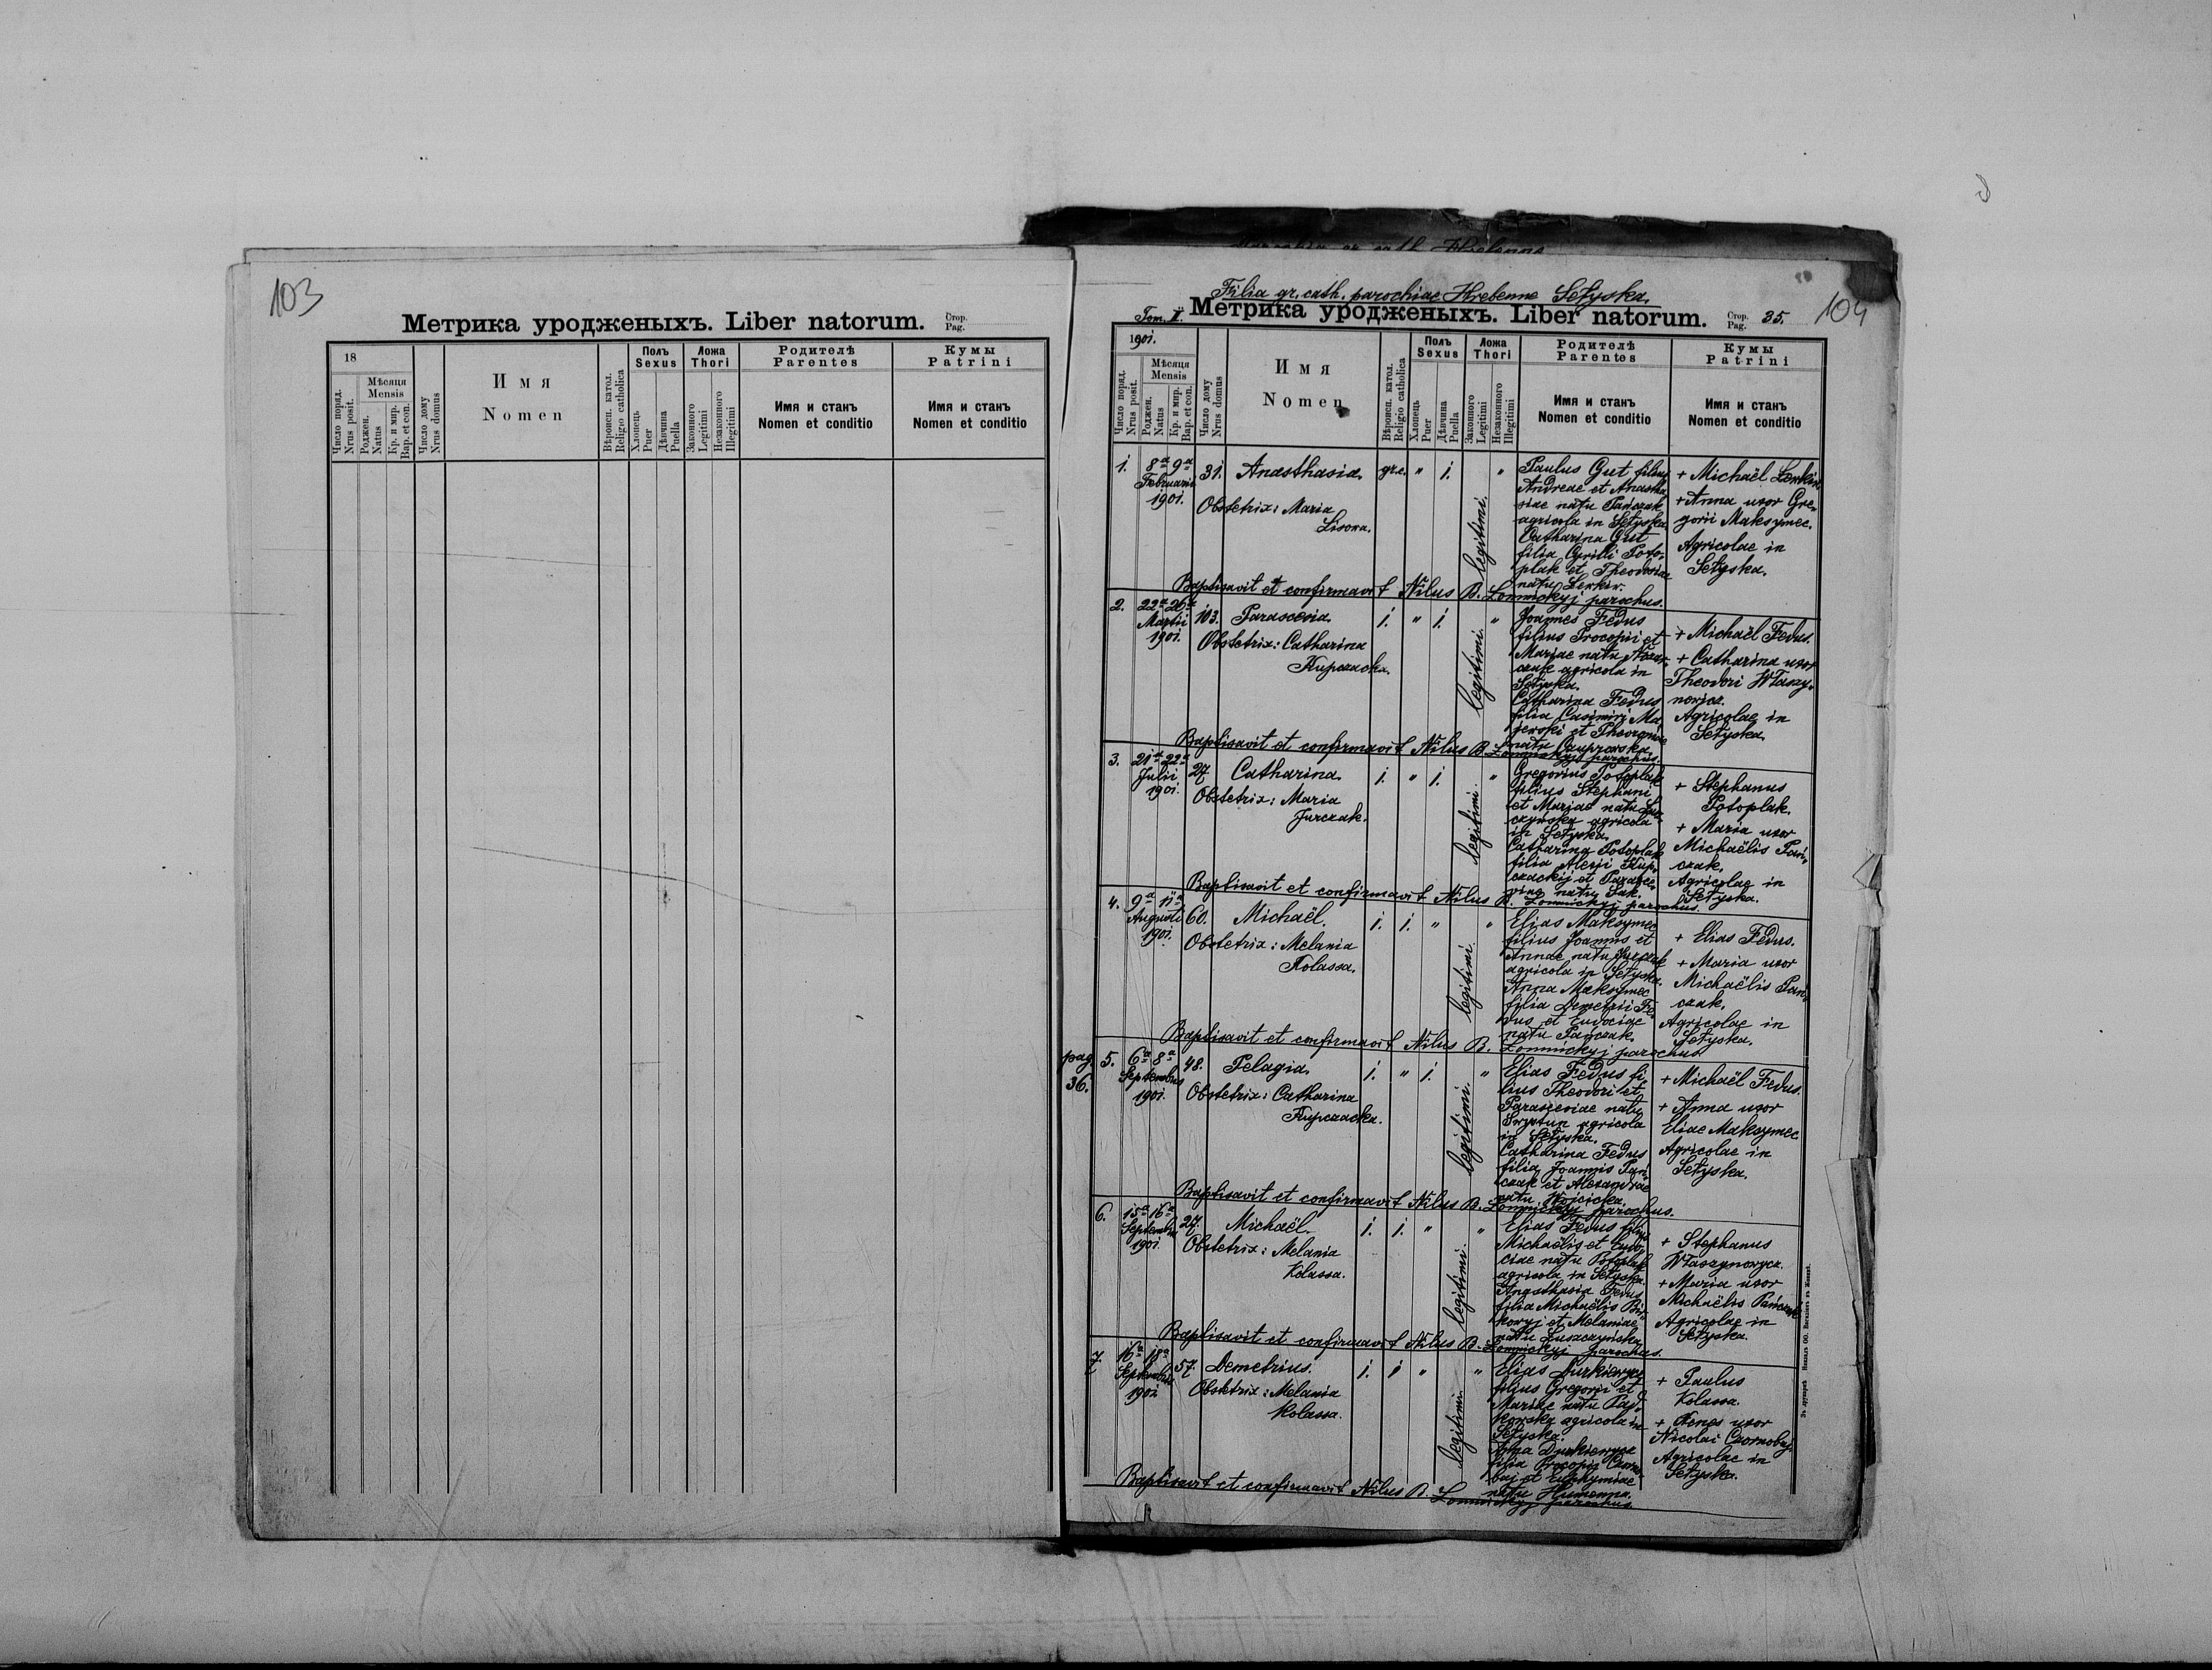 103
Метрика уродженыхъ. Liber natorum.
Стор.
Pag.
18
Число поряд.
Nrus posit.
Мѣсяця
Mensis
Роджен.
Natus
Кр. и мир.
Bap. et con.
Число дому
Nrus domus
Имя
Nomen
Вѣроисп. катол.
Religio catholica
Полъ
Sexus
Хлопець
Puer
Дѣвчина
Puella
Ложа
Thori
Законного
Legitimi
Незаконного
Illegitimi
Родителѣ
Parentes
Имя и станъ
Nomen et conditio
Кумы
Patrini
Имя и станъ
Nomen et conditio
Filia gr. cath. parochiae Hrebenne Sełyska.
Tom. II.
Метрика уродженыхъ. Liber natorum.
Стор.
Pag.
35.
104
1901.
Число поряд.
Nrus posit.
Мѣсяця
Mensis
Роджен.
Natus
Кр. и мир.
Bap. et con.
Число дому
Nrus domus
Имя
Nomen
Вѣроисп. катол.
Religio catholica
Полъ
Sexus
Хлопець
Puer
Дѣвчина
Puella
Ложа
Thori
Законного
Legitimi
Незаконного
Illegitimi
Родителѣ
Parentes
Имя и станъ
Nomen et conditio
Кумы
Patrini
Имя и станъ
Nomen et conditio
1. 8a 9a
Februarii
1901.
31. Anasthasia. gr.c. " 1. legitimi. "
Obstetrix: Maria
Lisowa.
Paulus Gut filius
Andreae et Anastha
siae natu Pańczak
agricola in Sełyska.
Catharina Gut
filia Cyrilli Poto-
plak et Theodosiae
natu Lewkiw.
+ Michaël Lewkiw.
+ Anna uxor Gre-
gorii Maksymec.
Agricolae in
Sełyska.
Baptisavit et confirmavit Nilus B. Łomnickyj parochus.
2. 22a 26a
Martii
1901.
103. Parascevia. i. " 1. legitimi. "
Obstetrix: Catharina
Kupczacka.
Joannes Fedus
filius Procopii et
Mariae natu
czak agricola in
Sełyska.
Catharina Fedus
filia Casimiri Ma
jewski et
natu
+ Michaël Fedus.
+ Catharina uxor
Theodori Właszy-
nowicz.
Agricolae in
Sełyska.
Baptisavit et confirmavit Nilus B. Łomnickyj parochus.
3. 21a 22a
Julii
1901.
27 Catharina. i. " 1. legitimi. "
Obstetrix: Maria
Jurczak.
Gregorius Potoplak
filius Stephani
et Mariae natu
agricola
in Sełyska.
Catharina Potoplak
filia Alexii Kup-
czackij et Parasce-
viae natu
+ Stephanus
Potoplak.
+ Maria uxor
Michaëlis Pań-
czak.
Agricolae in
Sełyska.
Baptisavit et confirmavit Nilus B. Łomnickyj parochus.
4. 9a 11a
Augusti
1901.
60. Michaël. i. 1. " legitimi. "
Obstetrix: Melania
Kolassa.
Elias Maksymec
filius Joannis et
Annae natu Jurczak
agricola in Sełyska.
Anna Maksymec
filia Demetrii Fe
dus et Eudociae
natu Pańczak.
+ Elias Fedus.
+ Maria uxor
Michaëlis Pań-
czak.
Agricolae in
Sełyska.
Baptisavit et confirmavit Nilus B. Łomnickyj parochus.
pag
36.
5. 6a 8a
Septembris
1901.
48. Pelagia. i. " 1. legitimi. "
Obstetrix: Catharina
Kupczacka.
Elias Fedus fi
lius Theodori et
Parasceviae natu
agricola
in Sełyska.
Catharina Fedus
filia Joannis Pań-
czak et Alexandrae
natu Wojcicka.
+ Michaël Fedus.
+ Anna uxor
Eliae Maksymec
Agricolae in
Sełyska.
Baptisavit et confirmavit Nilus B. Łomnickyj parochus.
6. 15a 16a
Septembris
1901.
27. Michaël. i. 1. " legitimi. "
Obstetrix: Melania
Kolassa.
Elias Fedus filius
Michaëlis et Eudo-
ciae natu Potoplak
agricola in Sełyska.
Anasthasia Fedus
filia Michaëlis
et Melaniae
natu
+ Stephanus
Właszynowycz.
+ Maria uxor
Michaëlis Pańczak
Agricolae in
Sełyska.
Baptisavit et confirmavit Nilus B. Łomnickyj parochus.
7. 16a 18a
Septembris
1901.
57. Demetrius. i. 1 " legitimi. "
Obstetrix: Melania
Kolassa.
Elias Durkiewycz
filius Gregorii et
Mariae natu
agricola in
Sełyska.
Anna Durkiewycz
filia Procopii Czorno-
byj et Euphymiae
natu Humenna.
+ Paulus
Kolassa.
+ Agnes uxor
Nicolai Czornobyj
Agricolae in
Sełyska.
Baptisavit et confirmavit Nilus B. Łomnickyj parochus.